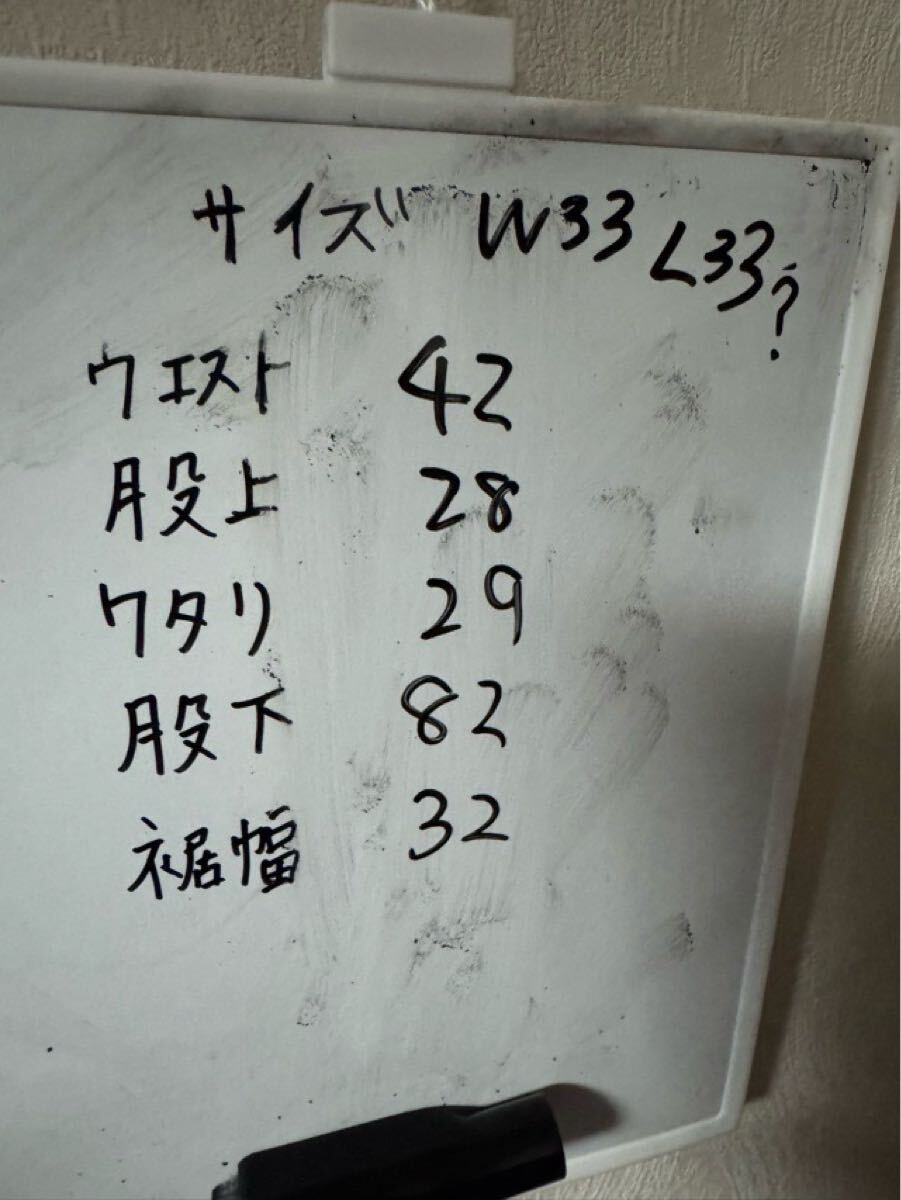 サイズ W33 L33?
ウエスト 42
股上 28
ワタリ 29
股下 82
裾幅 32